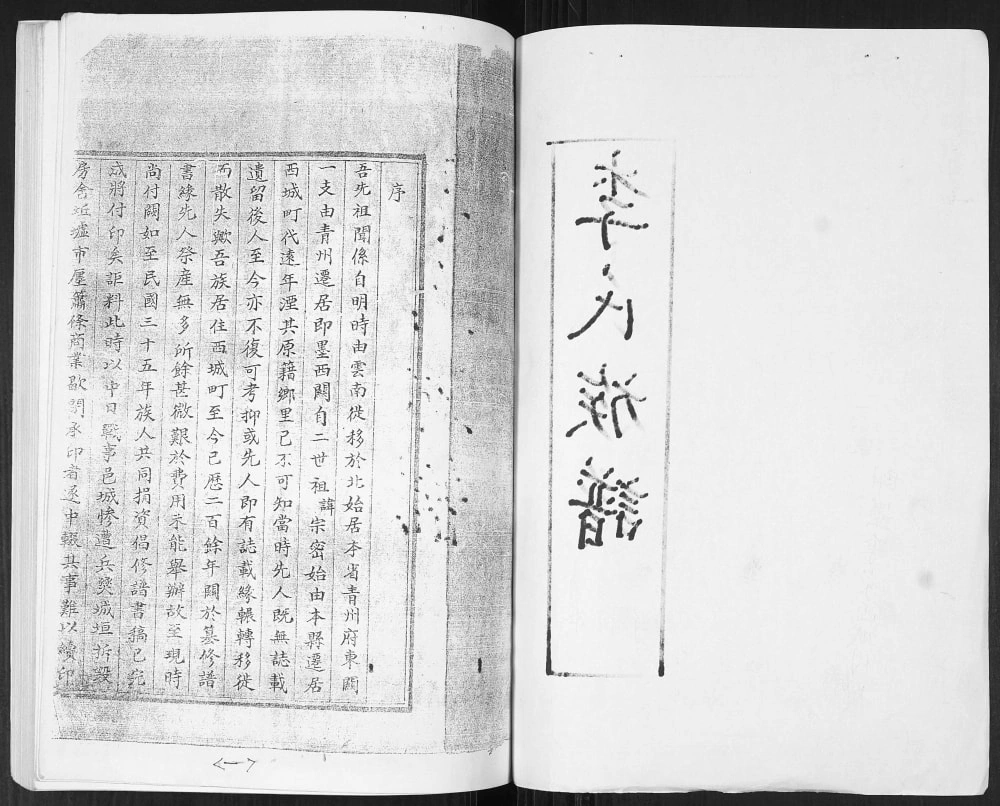 李氏族譜
序
吾先祖聞係自明時由雲南從移於北始居本省青州府東關
一支由青州遷居即墨西關自二世祖諱宗密始由本縣遷居
西城町代遠年湮其原籍鄉里已不可知當時先人既無誌載
遺留後人至今亦不復可考抑或先人即有誌載緣輾轉移徙
而散失歟吾族居住西城町至今已歷二百餘年關於纂修譜
書緣先人祭產無多所餘甚微艱於費用未能舉辦故至現時
尚付闕如至民國三十五年族人共同捐資倡修譜書稿已完
成將付印矣詎料此時以中日戰事邑城慘遭兵燹城垣拆毀
房舍近墟市廛蕭條商業歇閉承印者遂中輟其事難以續印
<一>